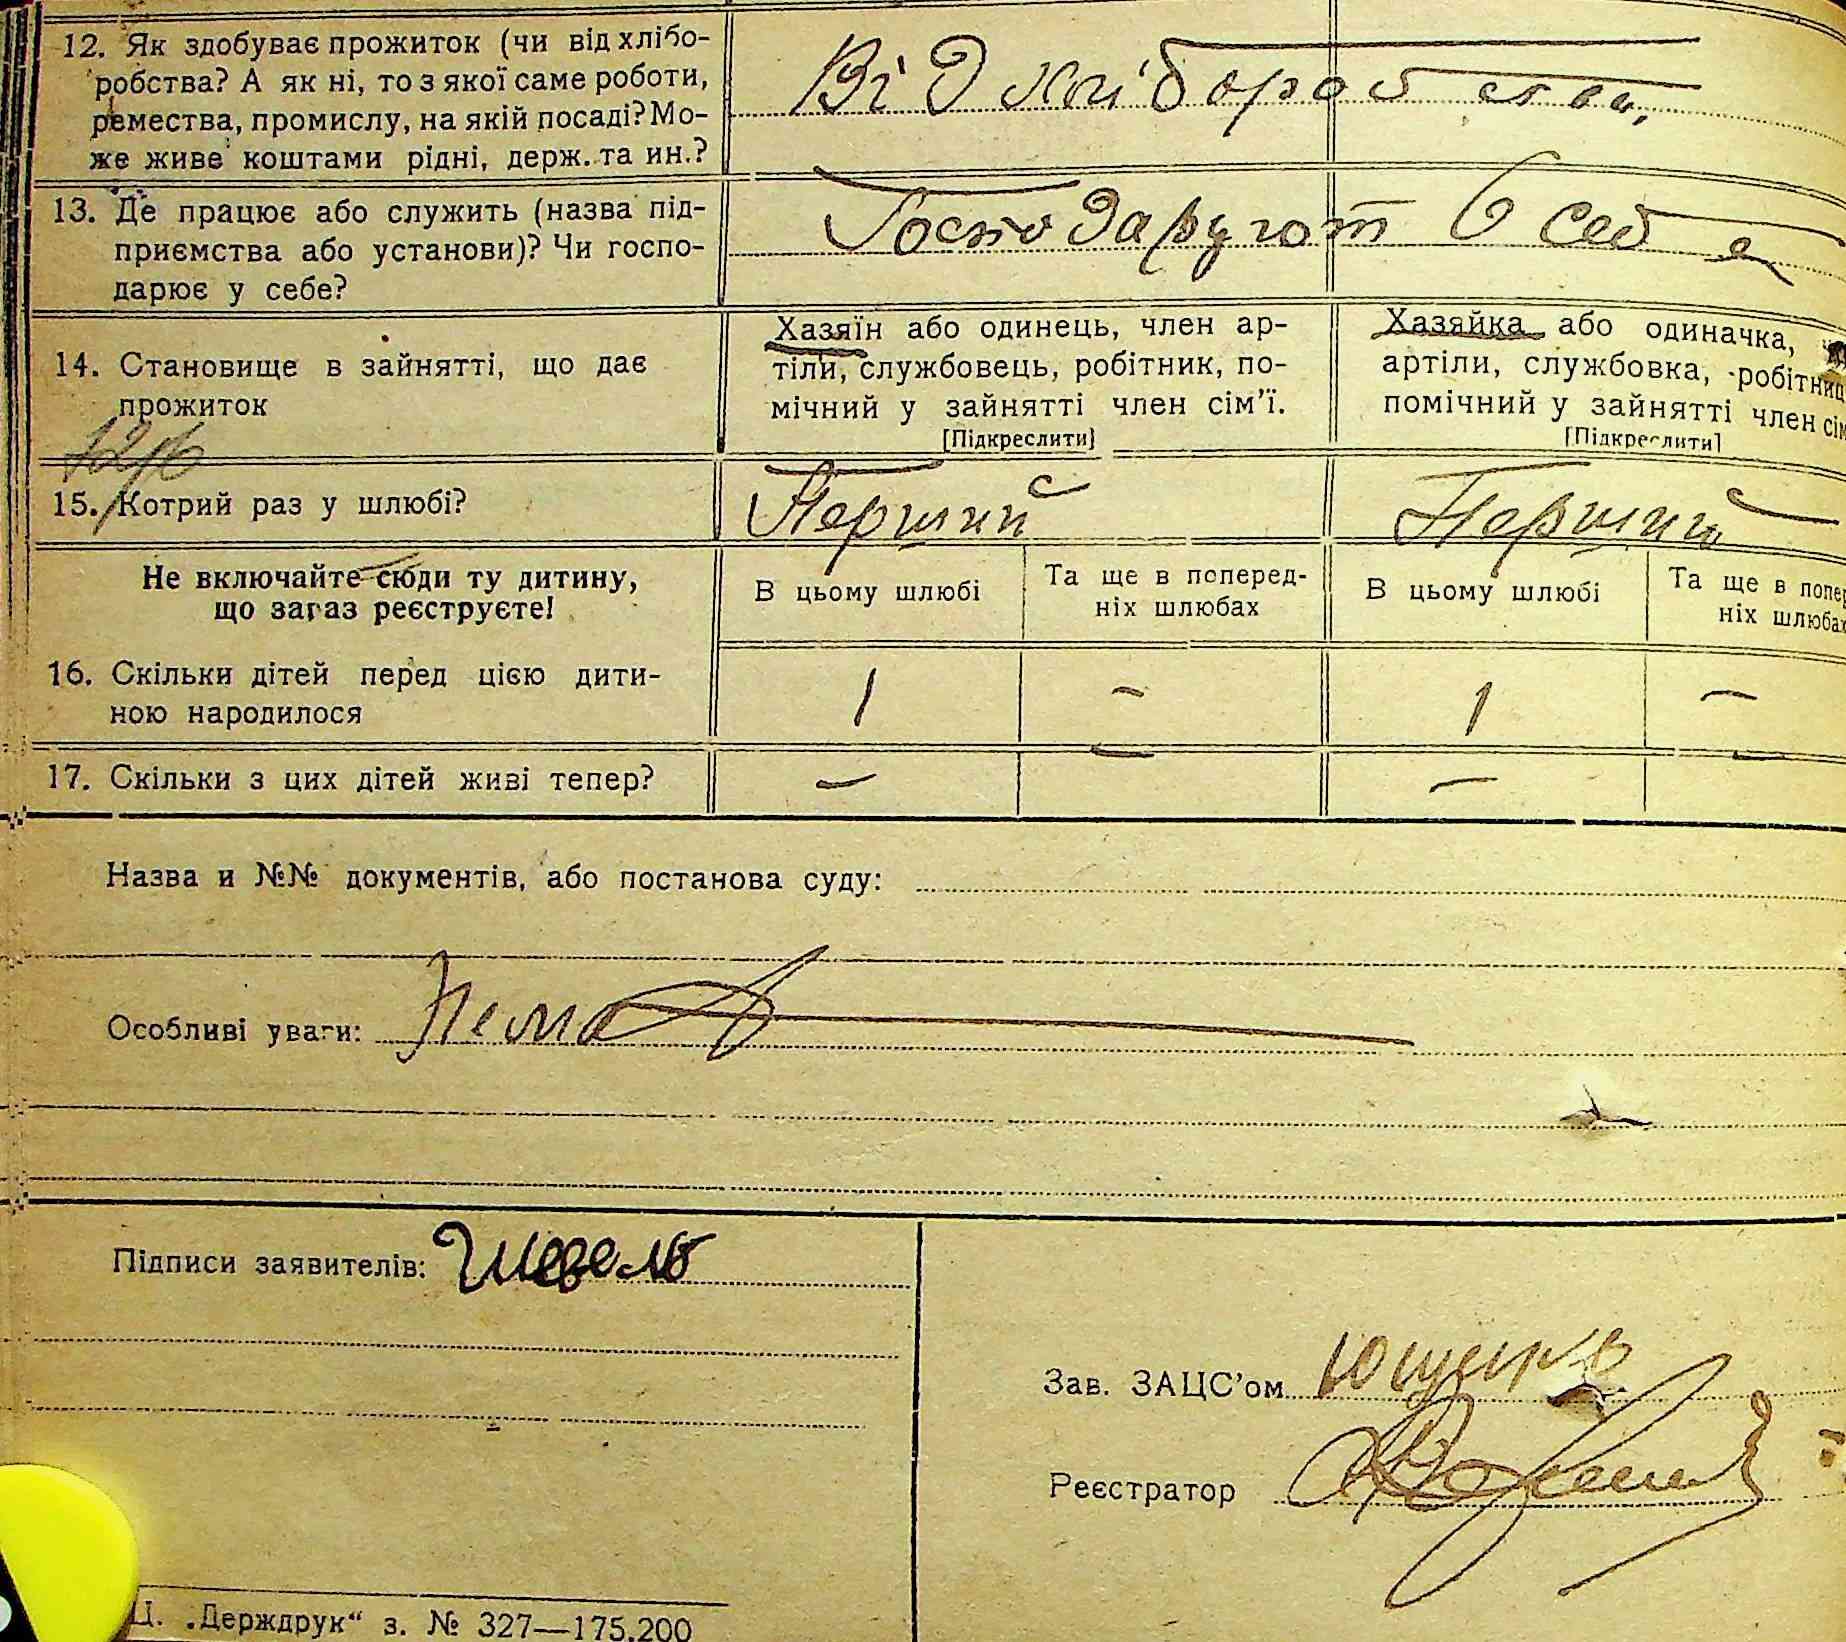 12. Як здобуває прожиток (чи від хлібо-
робства? А як ні, то з якої саме роботи,
ремества, промислу, на якій посаді? Мо-
же живе коштами рідні, держ. та ин.?
Від хліборобства,
13. Де працює або служить (назва під-
приємства або установи)? Чи госпо-
дарює у себе?
Господарують в себе
14. Становище в зайнятті, що дає
прожиток
Хазяїн або одинець, член ар-
тіли, службовець, робітник, по-
мічний у зайнятті член сім'ї.
[Підкреслити]
Хазяйка або одиначка,
артіли, службовка, робітниц
помічний у зайнятті член сім
[Підкреслити]
15. Котрий раз у шлюбі?
Перший
Перший
Не включайте сюди ту дитину,
що зараз реєструєте!
В цьому шлюбі
Та ще в поперед-
ніх шлюбах
В цьому шлюбі
Та ще в попер
ніх шлюбах
16. Скільки дітей перед цією дити-
ною народилося
1 – 1 –
17. Скільки з цих дітей живі тепер?
– – – –
Назва и №№ документів, або постанова суду:
Особливі уваги: Нема
Підписи заявителів: Шевель
Зав. ЗАЦС'ом
Реєстратор
Ц. „Держдрук“ з. № 327—175.200